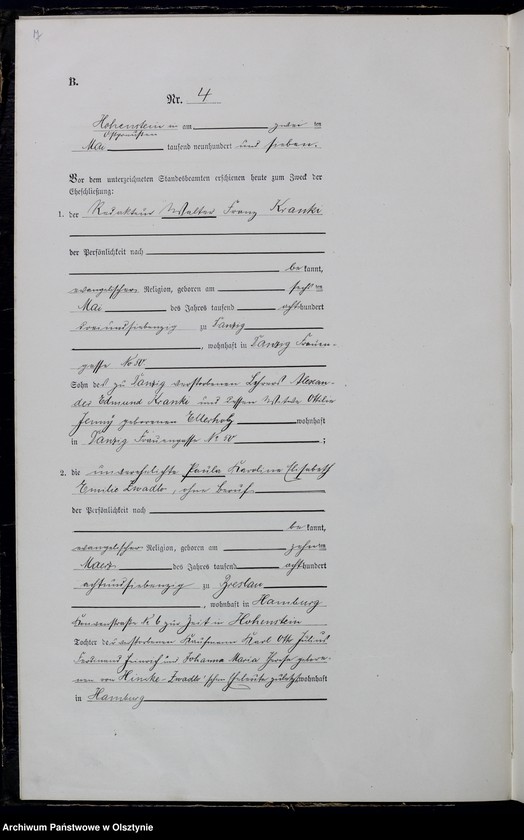 B.
Nr. 4
Hohenstein in am zwei ten
Ostpreußen
Mai tausend neunhundert und sieben.
Vor dem unterzeichneten Standesbeamten erschienen heute zum Zweck der
Eheschließung:
1. der Redakteur Walter Franz Kranki
der Persönlichkeit nach
be kannt,
evangelischer Religion, geboren am sechs ten
Mai des Jahres tausend acht hundert
dreiundsiebenzig zu Danzig
, wohnhaft in Danzig Frauen-
gasse No 50
Sohn des zu Danzig verstorbenen Lehrers Alexan-
der Edmund Kranki und dessen Witwe Ottilie
Jenny geborenen Ellerholz wohnhaft
in Danzig Frauengasse No 50 ;
2. die unverehelichte Paula Karoline Elisabeth
Emilie Zwadlo, ohne Beruf
der Persönlichkeit nach
be kannt,
evangelischer Religion, geboren am zehn ten
März des Jahres tausend acht hundert
achtundsiebenzig zu Breslau
, wohnhaft in Hamburg
6 zur Zeit in Hohenstein
Tochter des verstorbenen Kaufmann Karl Otto Julius
Ferdinand Heinrich und Johanna Maria geborenen von Hincke-Zwadlo'schen Eheleute zuletzt wohnhaft
in Hamburg
Archiwum Państwowe w Olsztynie